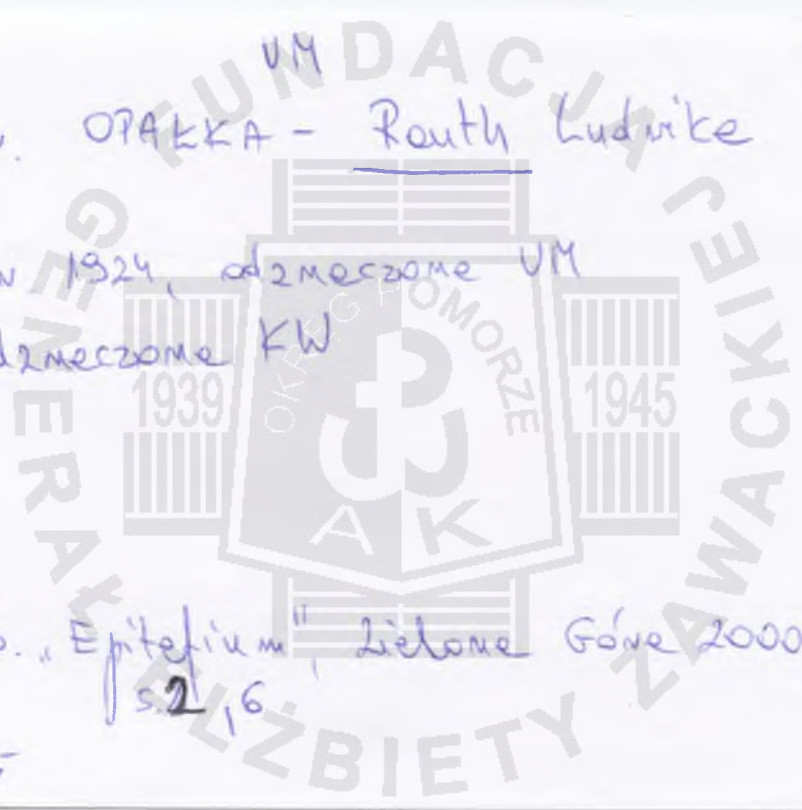 VM
v. OPAŁKA - Routh Ludwika
w 1924, odznaczona VM
dznaczona KW
o. "Epitafium", Zielona Góra 2000
s. 2, 6
FUNDACJA GENERAŁ ELŻBIETY ZAWACKIEJ
OKRĘG POMORZE
1939 1945
AK